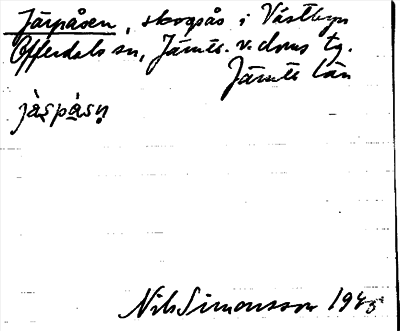 Järpåsen, skogsås i Västbyn
Offerdals sn, Jämtl. v. doms tg.
Jämtl län
jàṣpàsṇ
Nils Simonsson 1945